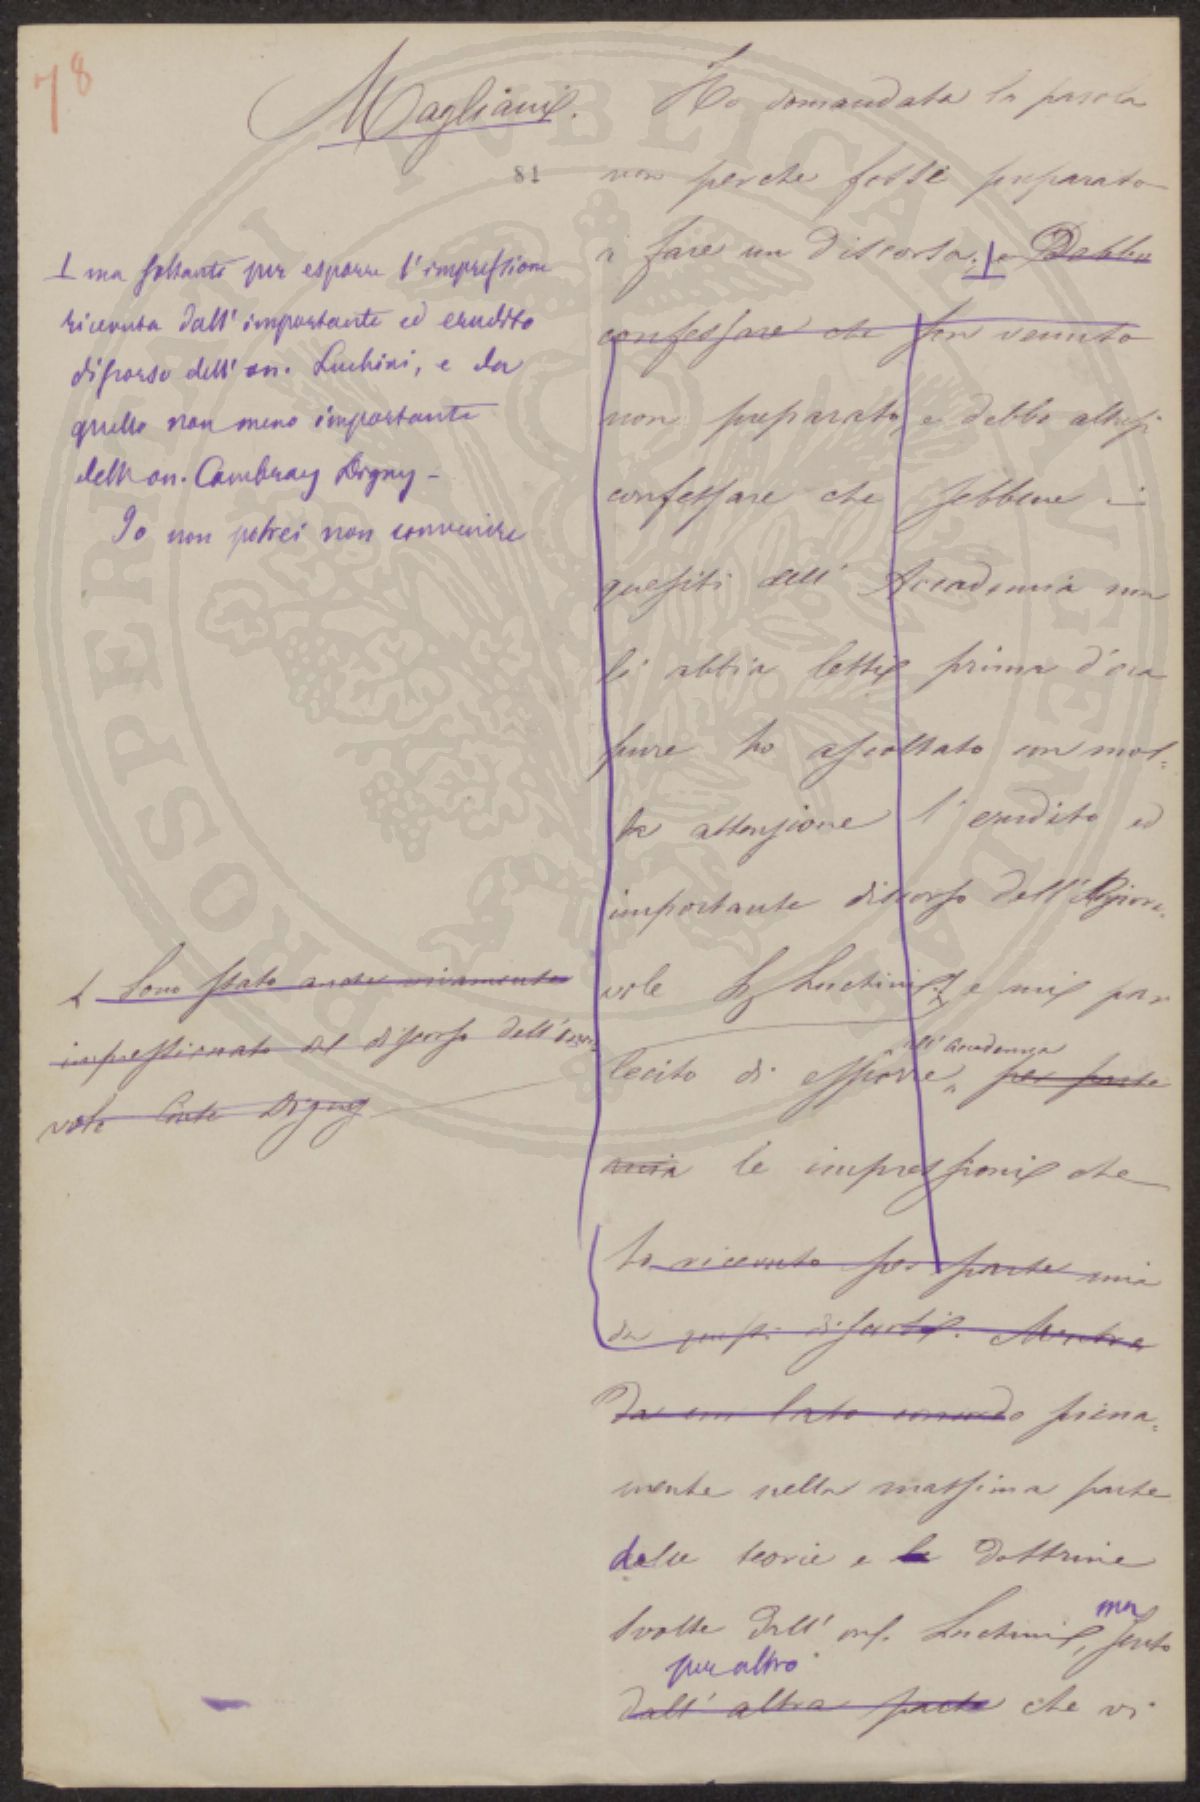 78
Magliani. Ho domandata la parola
81
non perche fossi preparato
a fare un discorso; e Debbo
confessare che son venuto
non preparato, e debbo altresi
confessare che sebbene i
quesiti dell' Accademia non
li abbia letti prima d'ora
pure ho ascoltato con mol=
ta attenzione l'erudito ed
importante discorso dell'Onore=
vole Luchini, e mi par
lecito di esporre, per parte
all'Accademia
mia le impressioni che
ho ricevuto per parte mia
da questi discorsi. Mentre
da un lato concordo piena=
mente nella massima parte
delle teorie e le dottrine
svolte dall'on. Luchini, ma sento
per altro
dall'altra parte che vi
⊥ ma soltanto per esporre l'impressione
ricevuta dall'importante ed erudito
discorso dell'on. Luchini, e da
quello non meno importante
dell'on. Cambray Digny –
Io non potrei non convenire
Sono stato anche vivamente
impressionato del discorso dell'onore=
vole Conte Digny
PUBLICAE
PROSPERITATI
AUGENDAE